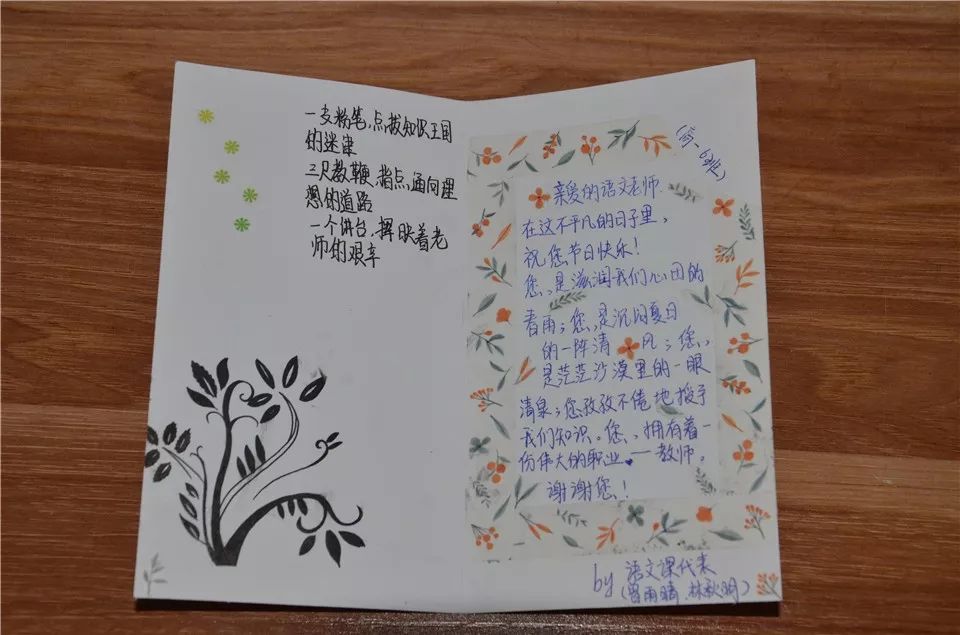 一支粉笔，点拨知识王国
的迷津
三尺教鞭，指点，通向理
想的道路
一个讲台，挥映着老
师的艰辛
（高一6班）
亲爱的语文老师
在这不平凡的日子里，
祝您节日快乐！
您，是滋润我们心田的
春雨；您，是沉闷夏日
的一阵清风；您，
是茫茫沙漠里的一眼
清泉；您孜孜不倦地授予
我们知识。您，拥有着一
份伟大的职业 — 教师。
谢谢您！
by 语文课代表
（曾雨晴、林秋明）